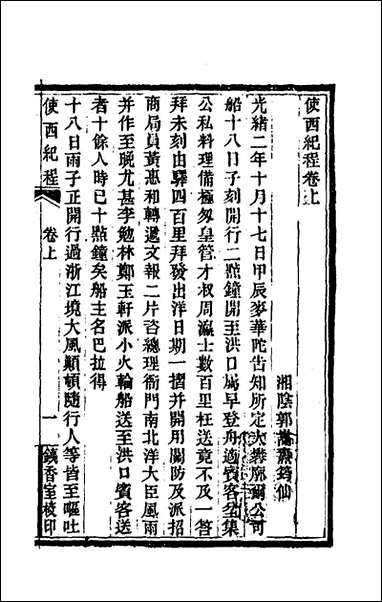 使西紀程卷上
湘陰郭嵩燾筠仙
光緒二年十月十七日甲辰麥華陀告知所定大㜑廓爾公司
船十八日子刻開行二㸃鐘開至洪口屬早登舟適賓客全集
公私料理備極匆皇管才叔周瀛士數百里枉送竟不及一答
拜未刻由驛四百里拜發出洋日期一摺並開用關防及派招
商局員黃惠和轉遞文報二片咨總理衙門南北洋大臣風雨
并作至晚尤甚李勉林鄭玉軒派小火輪船送至洪口賓客送
者十餘人時已十㸃鐘矣船主名巴拉得
十八日雨子正開行過浙江境大風顚頓隨行人等皆至嘔吐
使西紀程
卷上
一
鐵香室校印